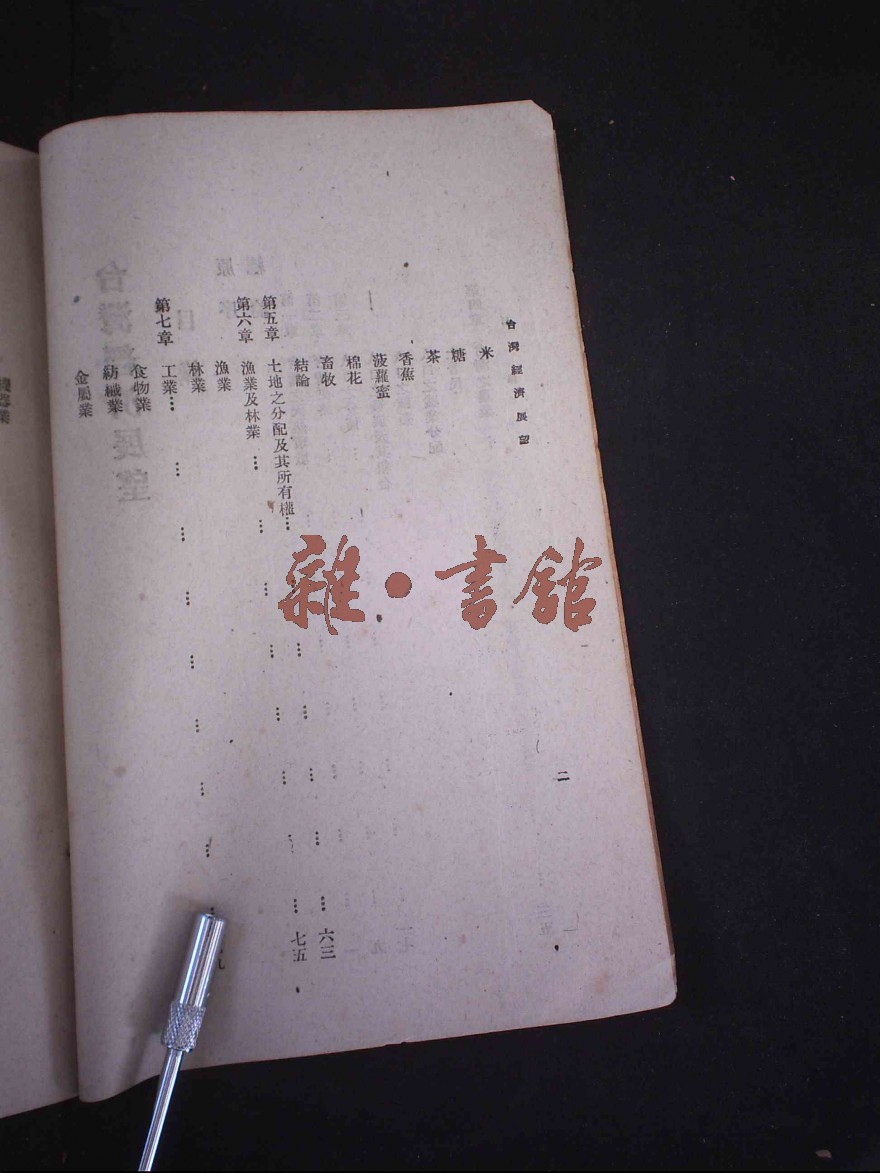 台灣經濟展望
二
米
糖
茶
香蕉
菠蘿蜜
棉花
畜牧
結論
第五章 土地之分配及其所有權………………六三
第六章 漁業及林業………………七五
漁業
林業
第七章 工業………………九
食物業
紡織業
金屬業
雜·書館